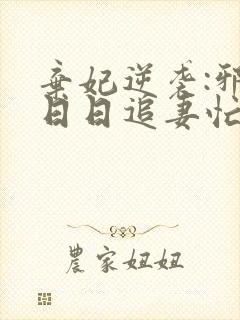 棄妃逆袭:邪
日日追妻忙
農家妞妞